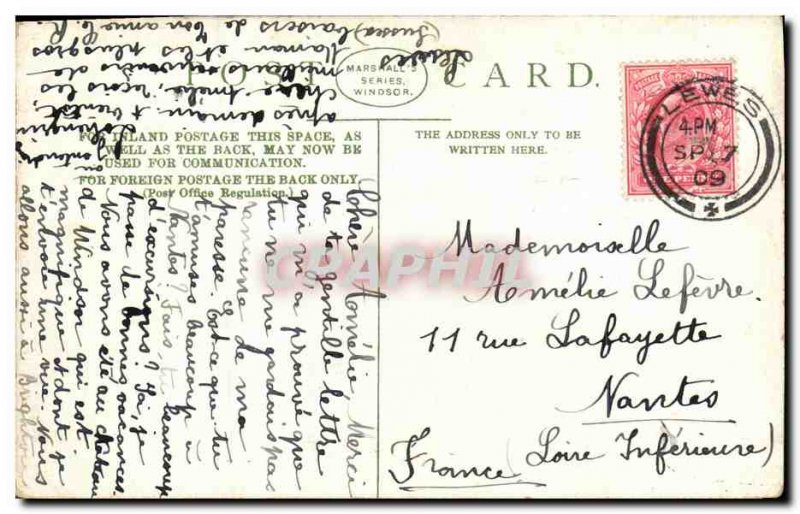 POST CARD.
MARSHALL'S
SERIES,
WINDSOR.
FOR INLAND POSTAGE THIS SPACE, AS
WELL AS THE BACK, MAY NOW BE
USED FOR COMMUNICATION.
FOR FOREIGN POSTAGE THE BACK ONLY.
(Post Office Regulation.)
THE ADDRESS ONLY TO BE
WRITTEN HERE.
LEWES
4.PM
SP 7
09
Mademoiselle
Amélie Lefèvre.
11 rue Lafayette
Nantes
(Loire Inférieure)
France
Chère Amélie Merci
de ta gentille lettre
qui m'a prouvé que
tu ne me gardais pas
rancune de ma
paresse. Est-ce que tu
t'amuses beaucoup à
Nantes? Fais-tu beaucoup
d'excursions? Ici, je
passe de bonnes vacances.
Nous avons été au château
de Windsor qui est
magnifique et dont je
t'envoie une vue. Nous
allons aussi à Brighton
après demain
Chère Amélie, reçois les
meilleurs souvenirs de
Maman et les plus gros
baisers de ton amie C. R.
Lewes
(Sussex)
CPAPHIL